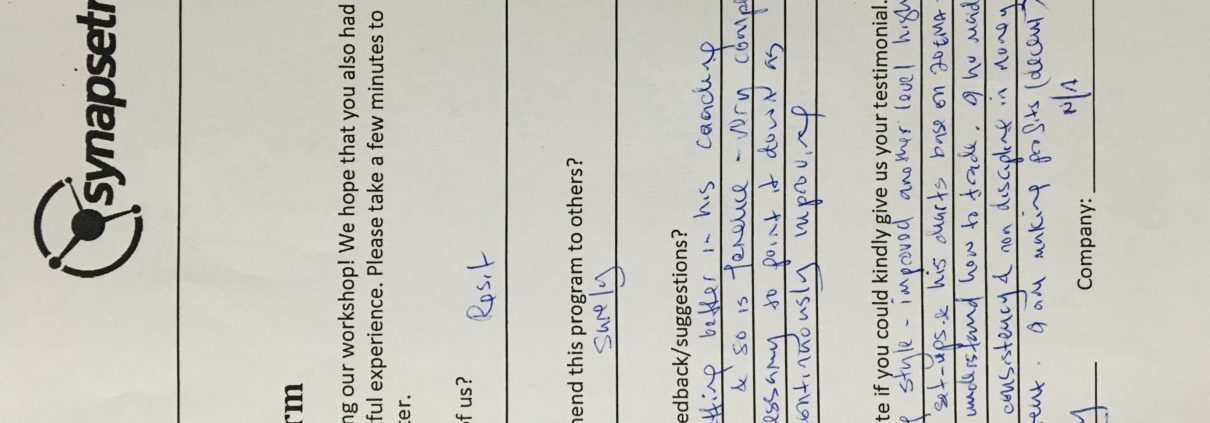 synapsetr
rm
ng our workshop! We hope that you also had
ful experience. Please take a few minutes to
ter.
of us?
Resit
mend this program to others?
Surely
edback/suggestions?
tting better in his coaching
& so is Terence - very compe
essary to point it down as
ontinuously improving
te if you could kindly give us your testimonial.
style - improved another level high
set-ups & his charts base on 20EMA
understand how to trade.
consistency & non discipline in money
ent. making profits (decent)
Company: N/A